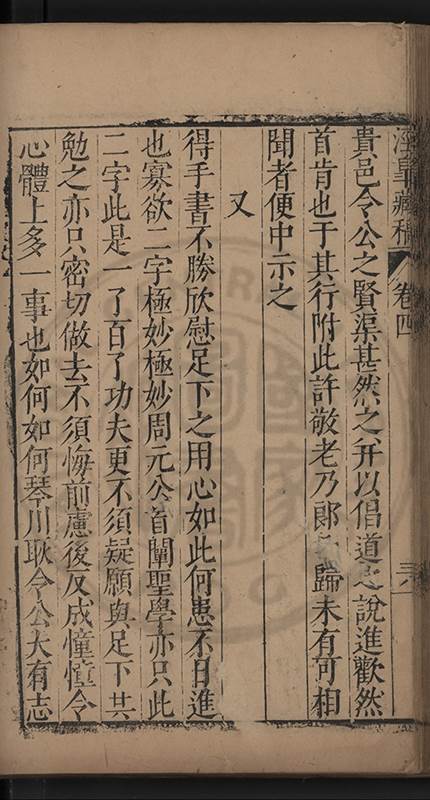 涇皐藏稿 卷四
貴邑令公之賢渠甚然之并以倡道之說進歡然
首肯也于其行附此許敬老乃郎 歸未有可相
聞者便中示之
又
得手書不勝欣慰足下之用心如此何患不日進
也寡欲二字極妙極妙周元公首闡聖學亦只此
二字此是一了百了功夫更不須疑願與足下共
勉之亦只密切做去不須悔前慮後反成憧憧令
心體上多一事也如何如何琴川耿令公大有志